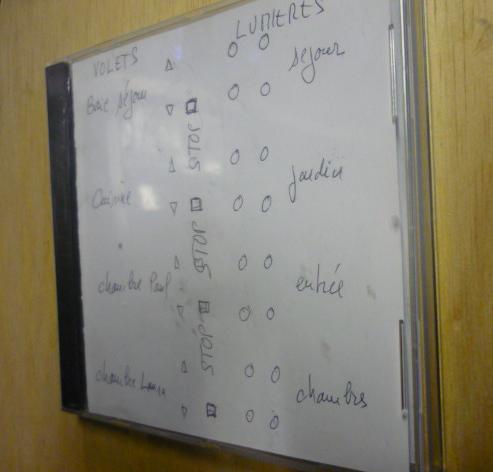 VOLETS
LUMIERES
Baie séjour
séjour
STOP
Cuisine
jardin
STOP
chambre Paul
entrée
STOP
chambre Laura
chambres